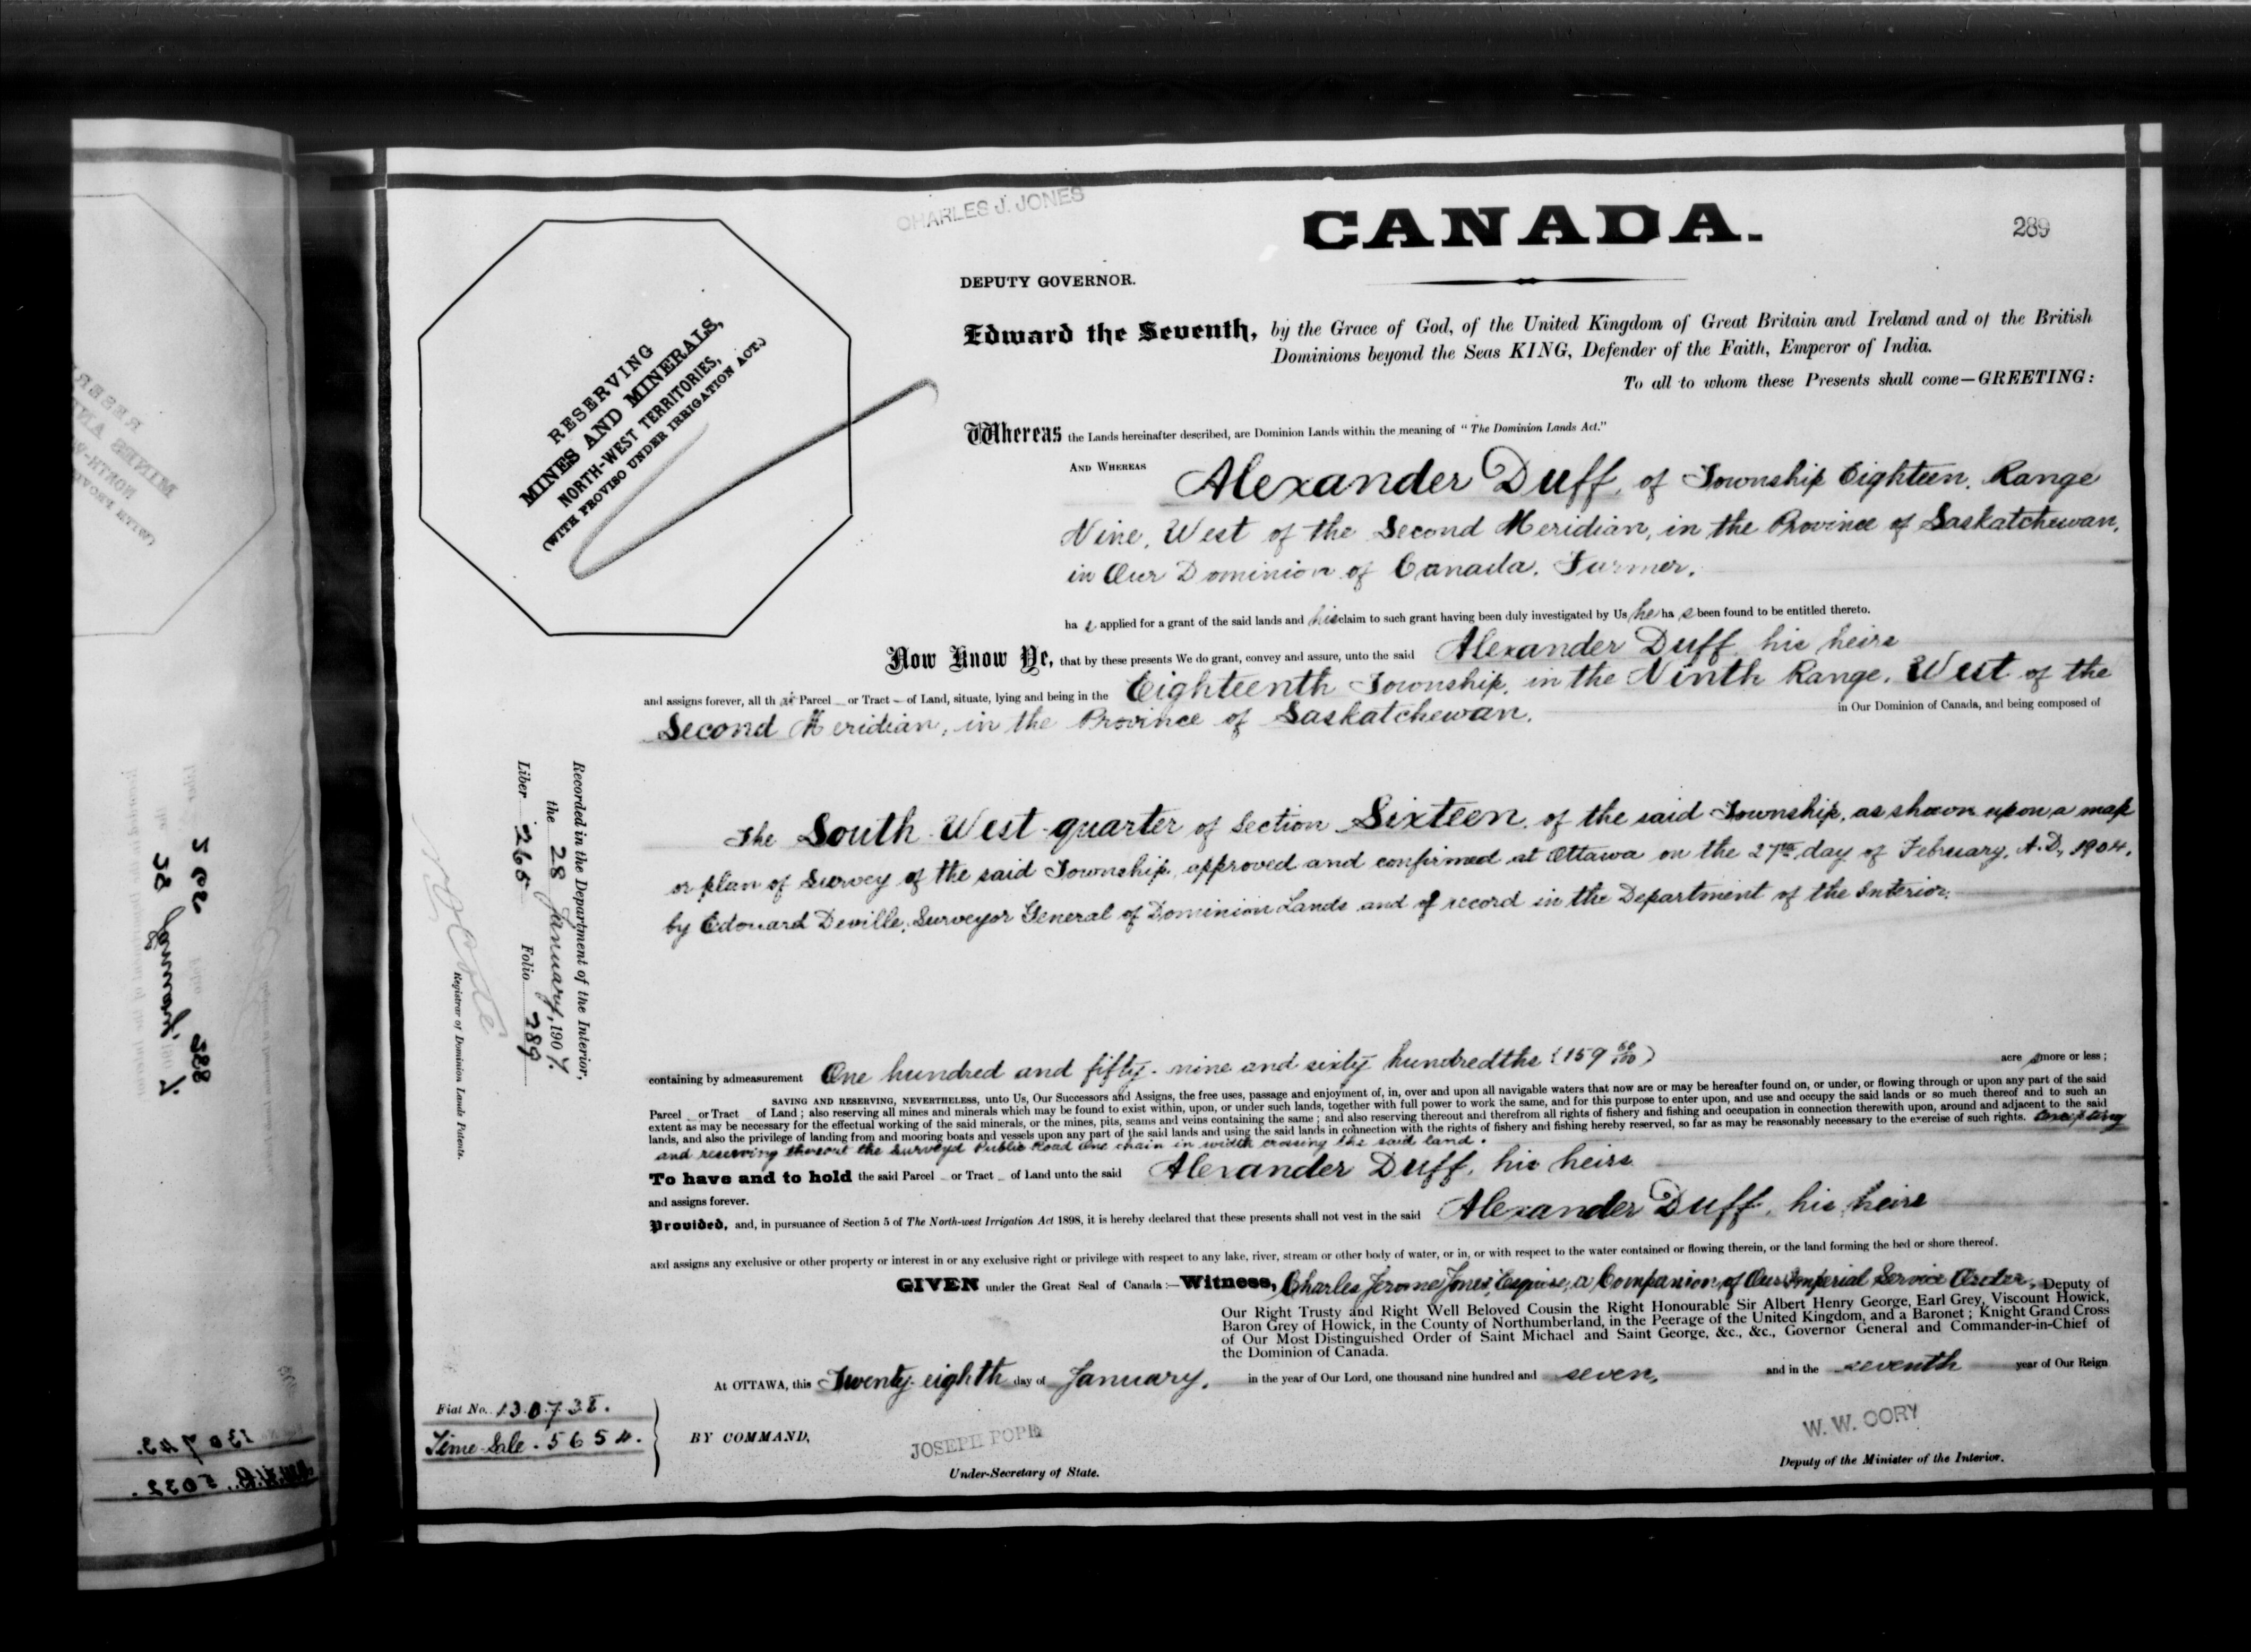 CHARLES J. JONES
CANADA.
289
DEPUTY GOVERNOR.
RESERVING
MINES AND MINERALS,
NORTH-WEST TERRITORIES,
(WITH PROVISO UNDER IRRIGATION ACT.)
Edward the Seventh, by the Grace of God, of the United Kingdom of Great Britain and Ireland and of the British
Dominions beyond the Seas KING, Defender of the Faith, Emperor of India.
To all to whom these Presents shall come—GREETING:
Whereas the Lands hereinafter described, are Dominion Lands within the meaning of "The Dominion Lands Act."
AND WHEREAS Alexander Duff, of Township Eighteen, Range
Nine, West of the Second Meridian, in the Province of Saskatchewan,
in Our Dominion of Canada, Farmer,
ha s applied for a grant of the said lands and his claim to such grant having been duly investigated by Us he ha s been found to be entitled thereto.
Now Know Ye, that by these presents We do grant, convey and assure, unto the said Alexander Duff, his heirs
and assigns forever, all th at Parcel or Tract of Land, situate, lying and being in the Eighteenth Township, in the Ninth Range, West of the
Second Meridian, in the Province of Saskatchewan, in Our Dominion of Canada, and being composed of
The South West quarter of Section Sixteen, of the said Township, as shown upon a map
or plan of Survey of the said Township, approved and confirmed at Ottawa on the 27th day of February, A.D. 1904,
by Edouard Deville, Surveyor General of Dominion Lands and of record in the Department of the Interior.
containing by admeasurement One hundred and fifty-nine and sixty hundredths (159 60/100) acre s more or less;
SAVING AND RESERVING, NEVERTHELESS, unto Us, Our Successors and Assigns, the free uses, passage and enjoyment of, in, over and upon all navigable waters that now are or may be hereafter found on, or under, or flowing through or upon any part of the said
Parcel or Tract of Land; also reserving all mines and minerals which may be found to exist within, upon, or under such lands, together with full power to work the same, and for this purpose to enter upon, and use and occupy the said lands or so much thereof and to such an
extent as may be necessary for the effectual working of the said minerals, or the mines, pits, seams and veins containing the same; and also reserving thereout and therefrom all rights of fishery and fishing and occupation in connection therewith upon, around and adjacent to the said
lands, and also the privilege of landing from and mooring boats and vessels upon any part of the said lands and using the said lands in connection with the rights of fishery and fishing hereby reserved, so far as may be reasonably necessary to the exercise of such rights. excepting
and reserving thereout the surveyed Public Road One chain in width crossing the said land.
To have and to hold the said Parcel or Tract of Land unto the said Alexander Duff, his heirs
and assigns forever.
Provided, and, in pursuance of Section 5 of The North-west Irrigation Act 1898, it is hereby declared that these presents shall not vest in the said Alexander Duff, his heirs
and assigns any exclusive or other property or interest in or any exclusive right or privilege with respect to any lake, river, stream or other body of water, or in, or with respect to the water contained or flowing therein, or the land forming the bed or shore thereof.
GIVEN under the Great Seal of Canada:—Witness, Charles Jerome Jones, Esquire, a Companion of Our Imperial Service Order, Deputy of
Our Right Trusty and Right Well Beloved Cousin the Right Honourable Sir Albert Henry George, Earl Grey, Viscount Howick,
Baron Grey of Howick, in the County of Northumberland, in the Peerage of the United Kingdom, and a Baronet; Knight Grand Cross
of Our Most Distinguished Order of Saint Michael and Saint George, &c., &c., Governor General and Commander-in-Chief of
the Dominion of Canada.
At OTTAWA, this Twenty-eighth day of January, in the year of Our Lord, one thousand nine hundred and seven, and in the seventh year of Our Reign
BY COMMAND,
JOSEPH POPE
Under-Secretary of State.
W. W. CORY
Deputy of the Minister of the Interior.
Fiat No. 130738.
Time Sale. 5654.
Recorded in the Department of the Interior,
the 28 January, 1907.
Liber 265 Folio 289
N O Cote
Registrar of Dominion Lands Patents.